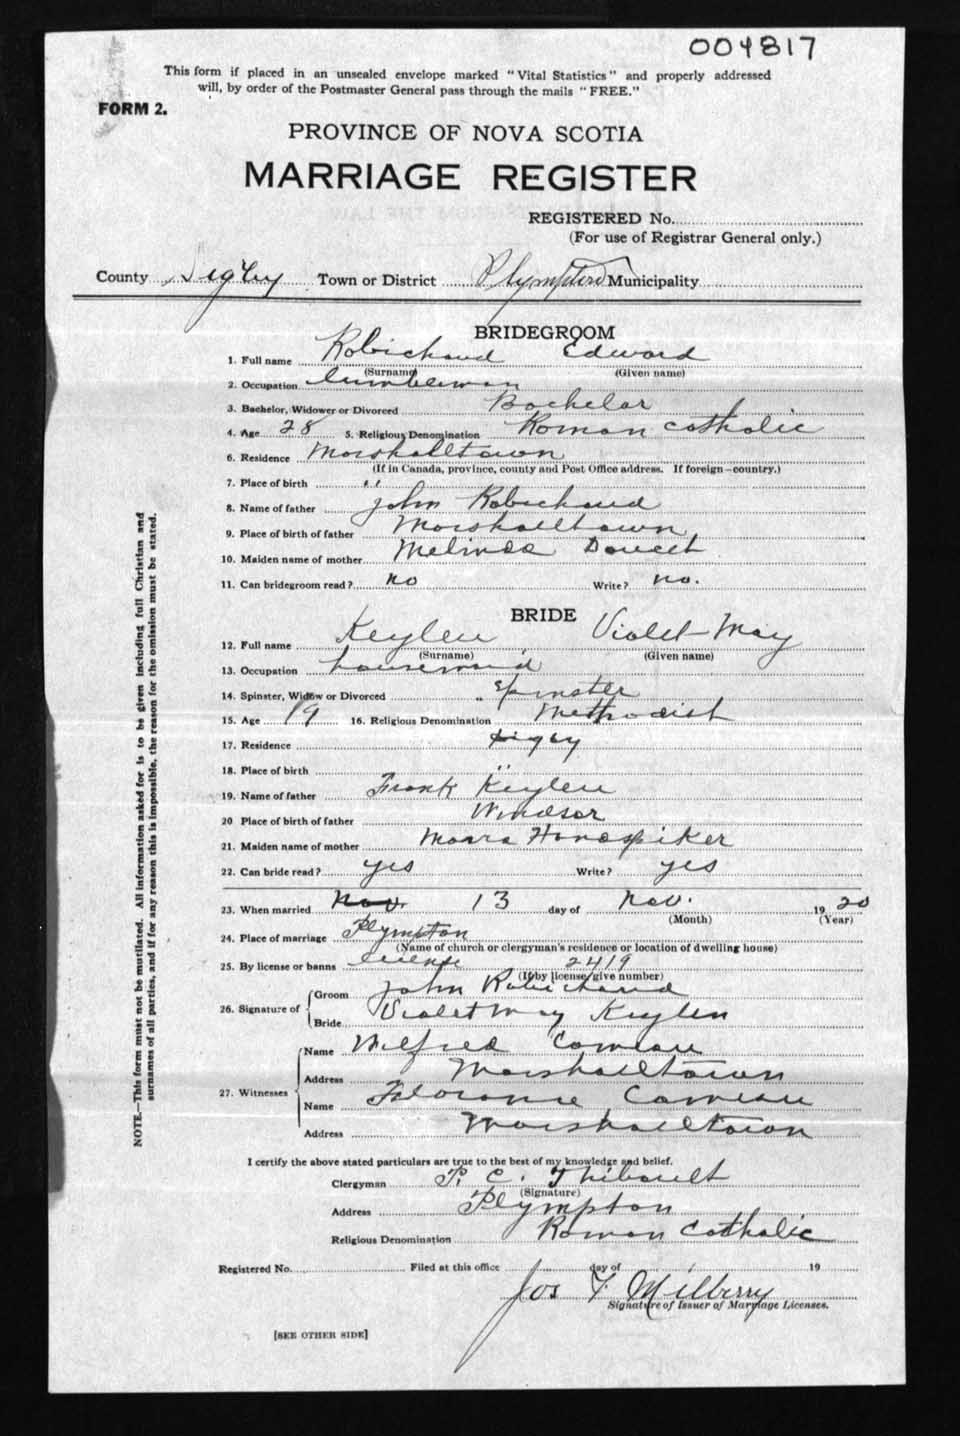 004817
This form if placed in an unsealed envelope marked "Vital Statistics" and properly addressed
will, by order of the Postmaster General pass through the mails "FREE."
FORM 2.
PROVINCE OF NOVA SCOTIA
MARRIAGE REGISTER
REGISTERED No.
(For use of Registrar General only.)
County Digby Town or District Plympton Municipality
BRIDEGROOM
1. Full name Robichaud Edward
(Surname) (Given name)
2. Occupation lumberman
3. Bachelor, Widower or Divorced Bachelor
4. Age 28 5. Religious Denomination Roman Catholic
6. Residence Marshalltown
(If in Canada, province, county and Post Office address. If foreign—country.)
7. Place of birth "
8. Name of father John Robichaud
9. Place of birth of father Marshalltown
10. Maiden name of mother Melinda Doucet
11. Can bridegroom read? no Write? no.
BRIDE
12. Full name Keylen Violet May
(Surname) (Given name)
13. Occupation housemaid
14. Spinster, Widow or Divorced Spinster
15. Age 19 16. Religious Denomination Methodist
17. Residence Digby
18. Place of birth "
19. Name of father Frank Keylen
20 Place of birth of father Windsor
21. Maiden name of mother
22. Can bride read? yes Write? yes
23. When married Nov. 13 day of Nov. 1920
(Month) (Year)
24. Place of marriage Plympton
(Name of church or clergyman's residence or location of dwelling house)
25. By license or banns license 2419
(If by license, give number)
26. Signature of Groom John Robichaud
Bride Violet May Keylen
27. Witnesses Name Wilfred Comeau
Address Marshalltown
Name Florence Comeau
Address Marshalltown
I certify the above stated particulars are true to the best of my knowledge and belief.
Clergyman P. C. Thibault
(Signature)
Address Plympton
Religious Denomination Roman Catholic
Registered No. Filed at this office day of 19
Jos F Milberry
Signature of Issuer of Marriage Licenses.
[SEE OTHER SIDE]
NOTE.—This form must not be mutilated. All information asked for is to be given including full Christian and
surnames of all parties, and if for any reason this is impossible, the reason for the omission must be stated.